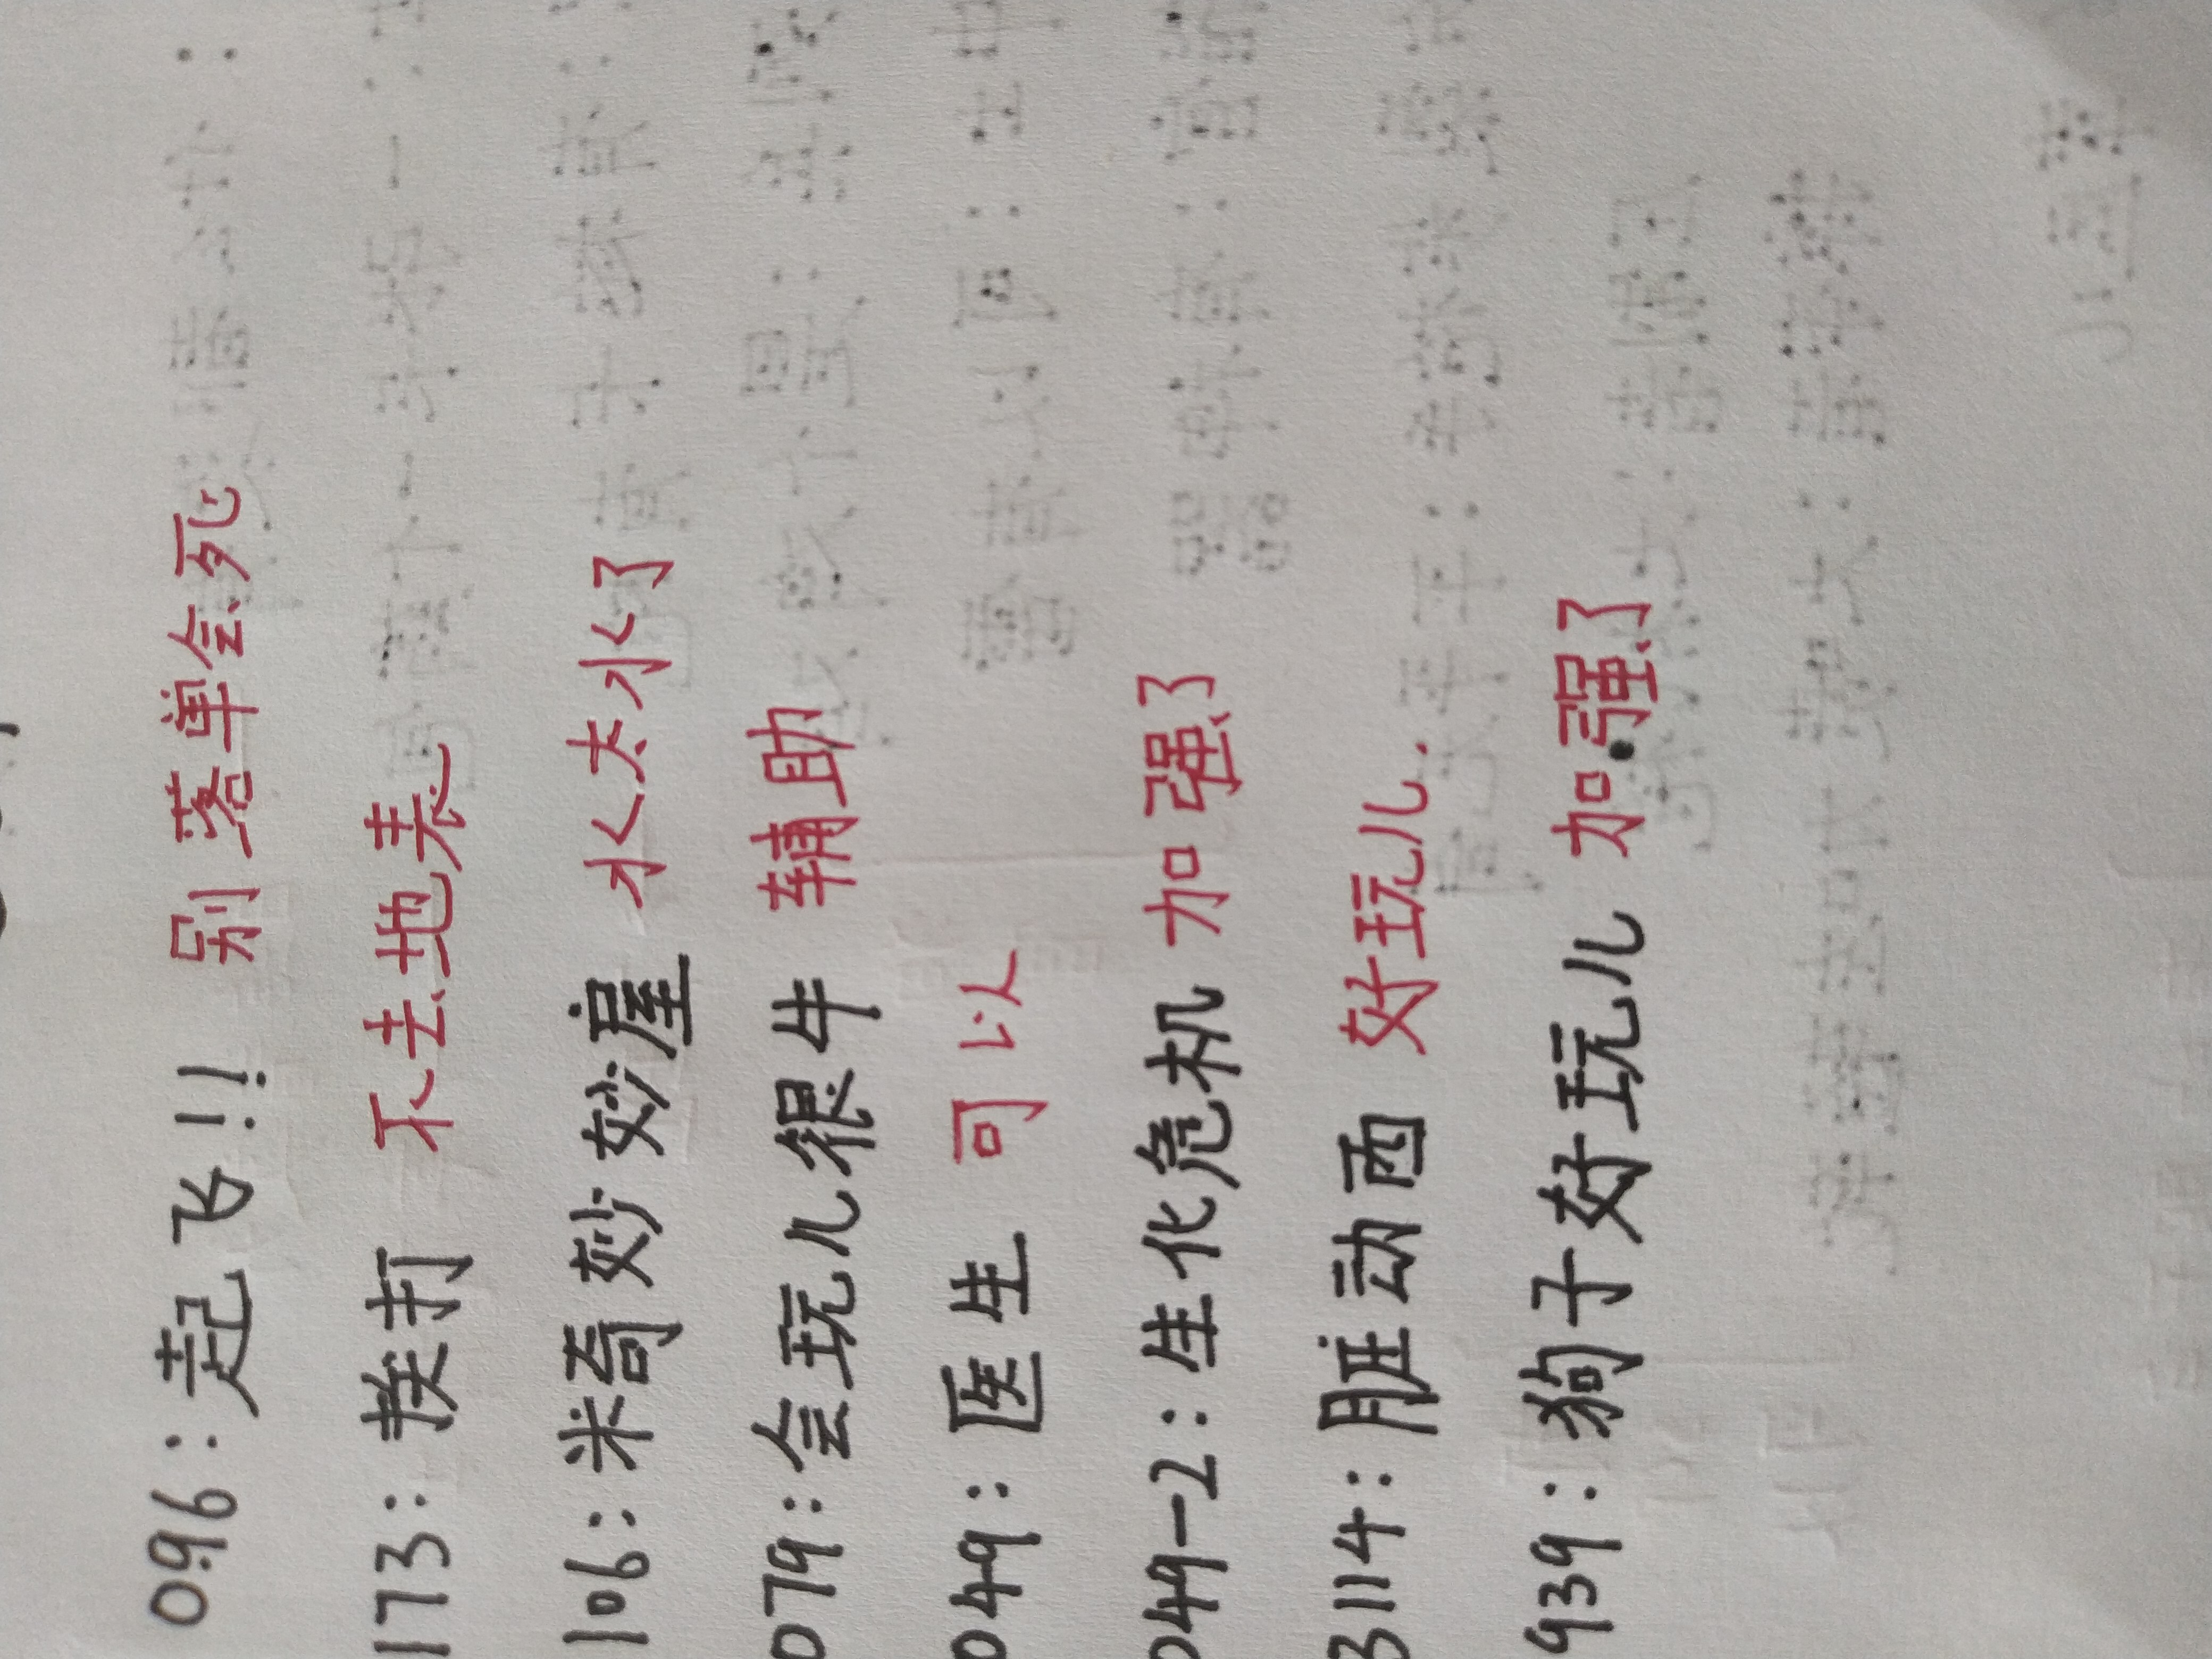 096：起飞!! 别落单会死
173：挨打 不去地表
106：米奇妙妙屋 水太水了
079：会玩儿很牛 辅助
049：医生 可以
049-2：生化危机 加强了
3114：脏动西 好玩儿.
939：狗子好玩儿 加强了